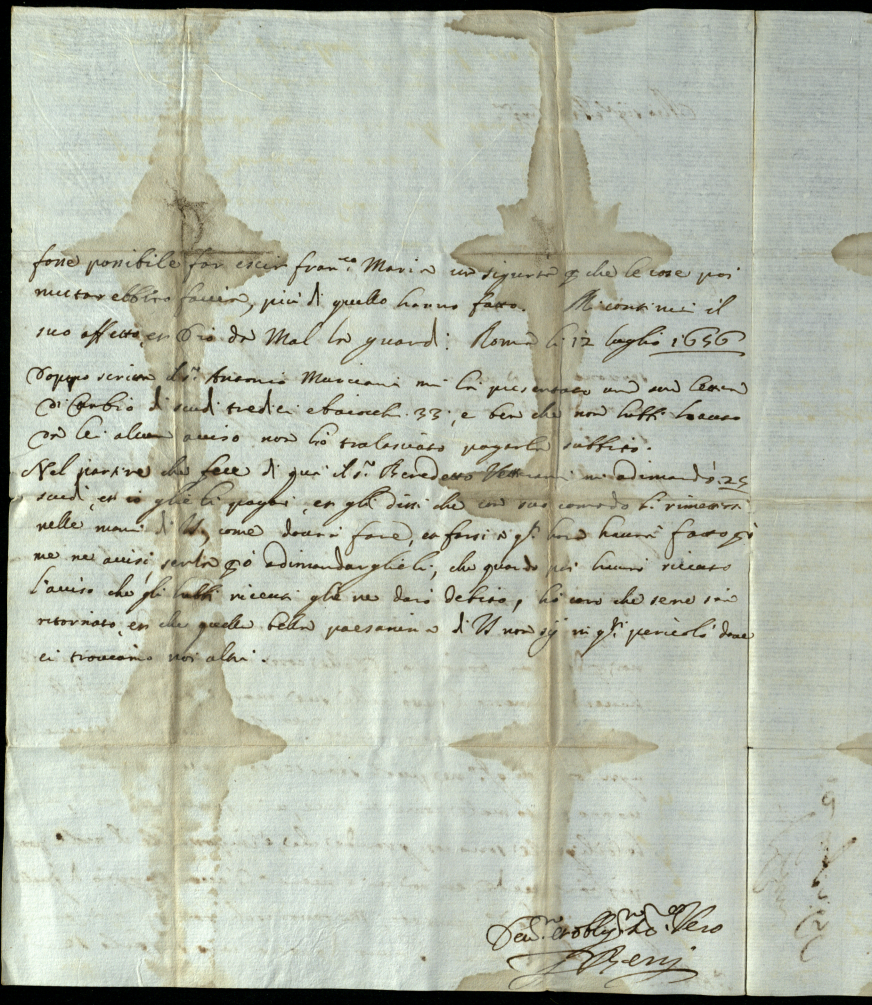 fosse possibile far escir Fran.co Maria un sigurtà p che le cose poi
muttarebbero faccia, più di quello hanno fatto. Mi continui il
suo affetto, et Dio da Mal la guardi: Roma li 12 luglio 1656
Doppo scritta il s.r Antonio Marciani mi ha presentato una sua lettera
di Cambio di scudi tredici e baiocchi 33, e ben che non habbi hauuto
da lei alcun auiso non ho tralasciato pagarla subbito.
Nel partire che fece di qui il s.r Benedetto mi adimandò 25
scudi, et io glie li pagai, et gli dissi che con suo comodo li rimettessi
nelle mani di VS, come dourà fare, et forsi a q.st hora haurà fatto
me ne auisi, senza p ò adimandarglieli, che quando poi haurò riceuto
l'auiso che gli habbi riceuti glie ne darò debito, ho caro che sene sia
ritornato, et che quella bella paesanina di VS non sij in q.sti pericoli doue
ci trouiamo noi altri.
Seru.re et obblig.mo Vero
Benij